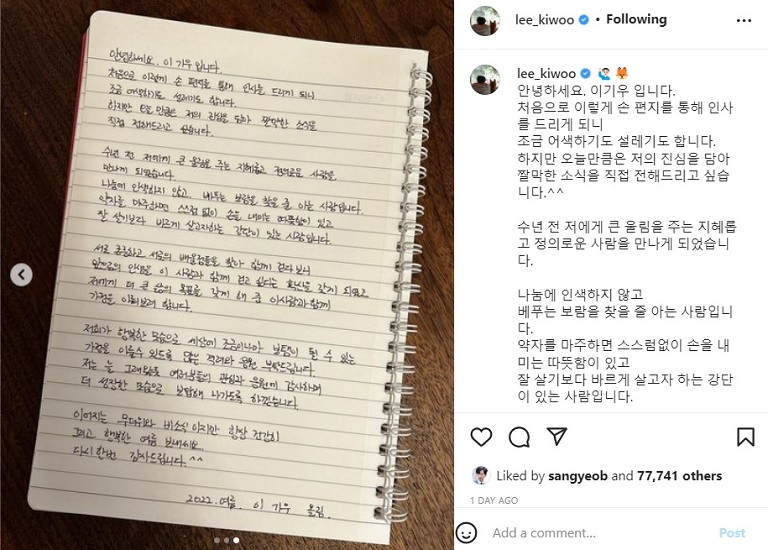 안녕하세요. 이 기우 입니다.
처음으로 이렇게 손 편지를 통해 인사를 드리게 되니
조금 어색하기도 설레기도 합니다.
하지만 오늘만큼은 저의 진심을 담아 짤막한 소식을
직접 전해드리고 싶습니다.
수년 전 저에게 큰 울림을 주는 지혜롭고 정의로운 사람을
만나게 되었습니다.
나눔에 인색하지 않고, 베푸는 보람을 찾을 줄 아는 사람입니다.
약자를 마주하면 스스럼 없이 손을 내미는 따뜻함이 있고
잘 살기보다 바르게 살고자하는 강단이 있는 사람입니다.
서로 존중하고 서로의 배울점들을 찾아 함께 걷다보니
앞으로의 인생을 이 사람과 함께 걷고 싶다는 확신을 갖게 되었고
저에게 더 큰 삶의 목표를 갖게 해 준 이 사람과 함께
가정을 이뤄보려 합니다.
저희가 행복한 모습으로 세상에 조금이나마 보탬이 될 수 있는
가정을 이룰수 있도록 많은 격려와 응원 부탁드립니다.
저는 늘 그래왔듯 여러분들의 관심과 응원에 감사하며
더 성장한 모습으로 보답해 나가도록 하겠습니다.
이어지는 무더위와 비소식이지만 항상 건강히
그리고 행복한 여름 보내세요.
다시 한번 감사드립니다.^^
2022. 여름. 이 기우 올림.
lee_kiwoo • Following
lee_kiwoo
안녕하세요. 이기우 입니다.
처음으로 이렇게 손 편지를 통해 인사
를 드리게 되니
조금 어색하기도 설레기도 합니다.
하지만 오늘만큼은 저의 진심을 담아
짤막한 소식을 직접 전해드리고 싶습
니다.^^
수년 전 저에게 큰 울림을 주는 지혜롭
고 정의로운 사람을 만나게 되었습니
다.
나눔에 인색하지 않고
베푸는 보람을 찾을 줄 아는 사람입니
다.
약자를 마주하면 스스럼없이 손을 내
미는 따뜻함이 있고
잘 살기보다 바르게 살고자 하는 강단
이 있는 사람입니다.
Liked by sangyeob and 77,741 others
1 DAY AGO
Add a comment... Post